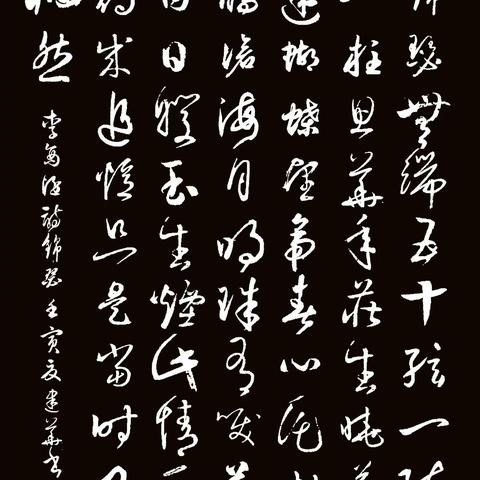 瑟無端五十弦一
一柱思華年莊生曉
迷蝴蝶望帝春心託
鵑滄海月明珠有淚
田日暖玉生煙此情
待成追憶只是當時
惘然
李商隱詩錦瑟壬寅夏建華書